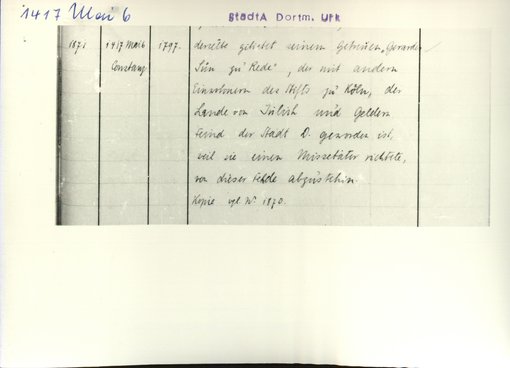 1417 Mai 6
StadtA Dortm. Urk
1871 1417 Mai 6 1797. derselbe gebietet seinem Getreuen "Gerardes
Constanz Sün zu Rede", der mit andern
Einwohnern des Stifts zu Köln, der
Lande von Jülich und Geldern
Feind der Stadt D. geworden ist,
weil sie einen Missetäter richtete,
von dieser Fehde abzustehen.
Kopie vgl. No 1870.